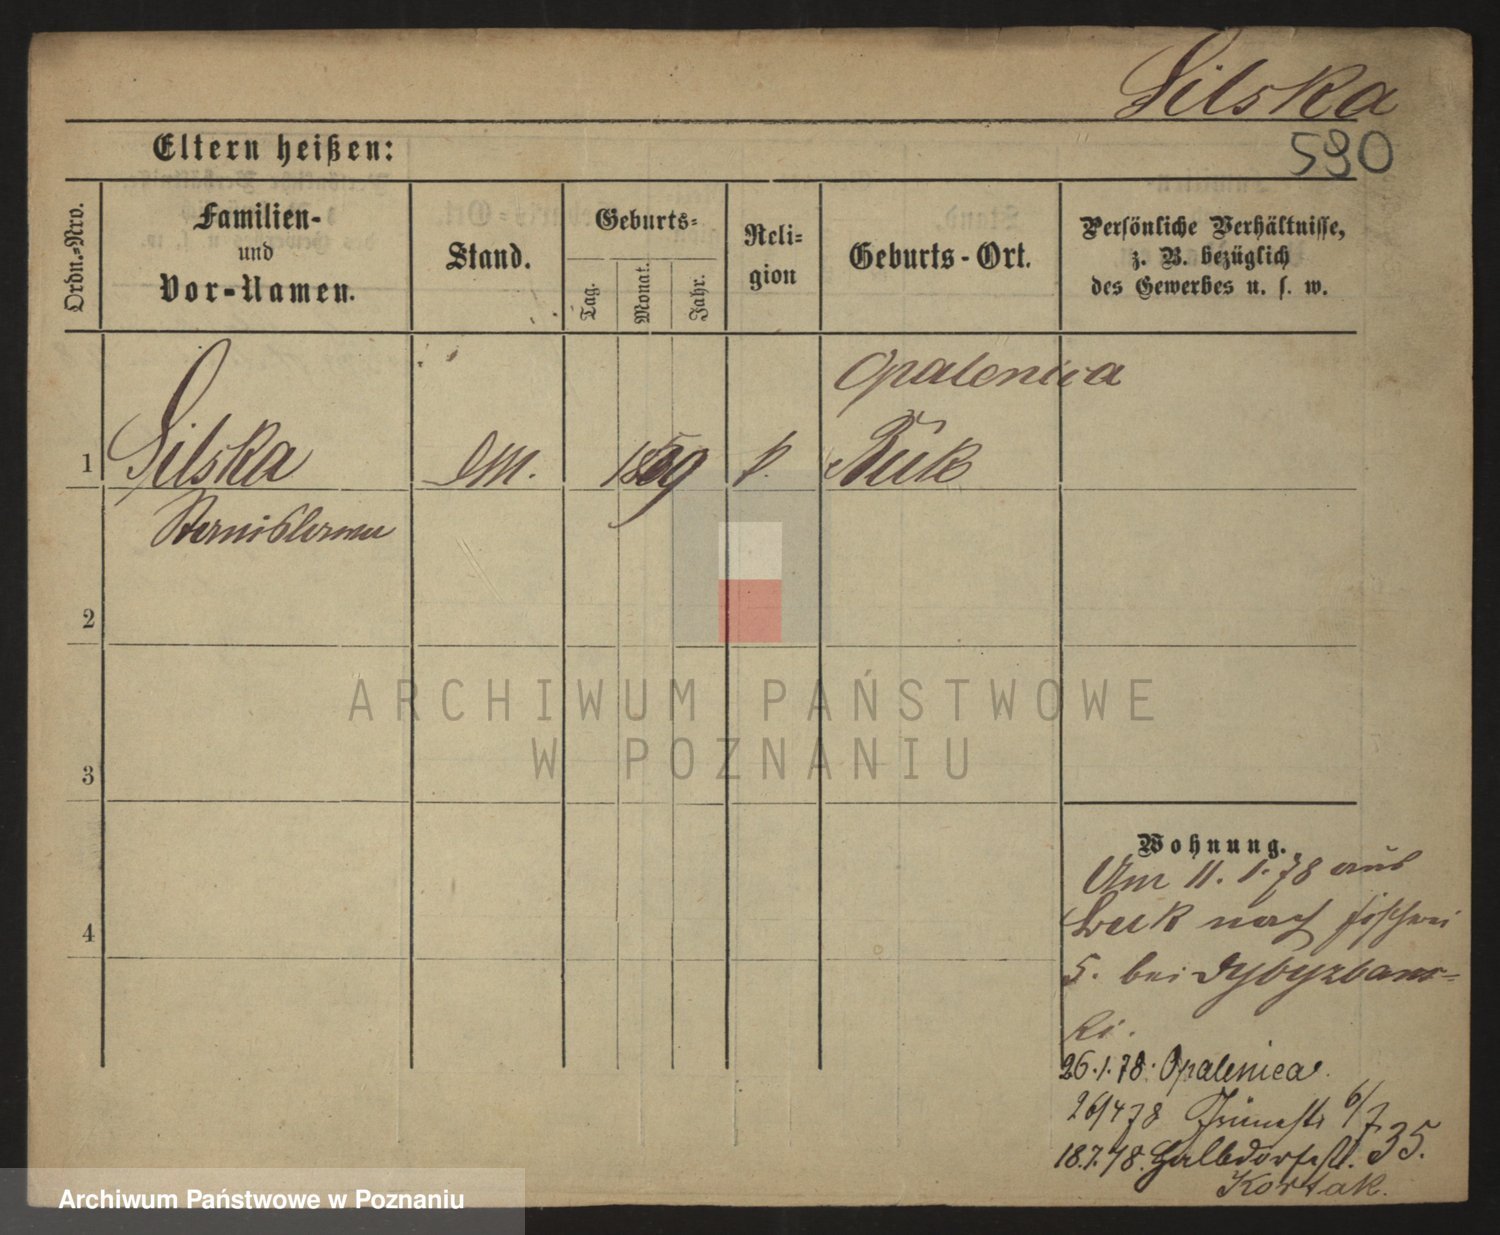 Silska
590
Eltern heißen:
Ordn.-Nro.
Familien-
und
Vor-Namen.
Stand.
Geburts-
Tag.
Monat.
Jahr.
Reli-
gion
Geburts-Ort.
Persönliche Verhältnisse,
z. B. bezüglich
des Gewerbes u. s. w.
Opalenica
1 Silska DM. 1859 k. Buk
Stanislawa
2
ARCHIWUM PAŃSTWOWE
W POZNANIU
3
Wohnung.
Am 11.1.78 aus
Buk nach
5. bei
ki.
4
26.1.78. Opalenica.
26/4 78 6/7.
18.7.78. Halbdorfstr. 35.
Kortak.
Archiwum Państwowe w Poznaniu